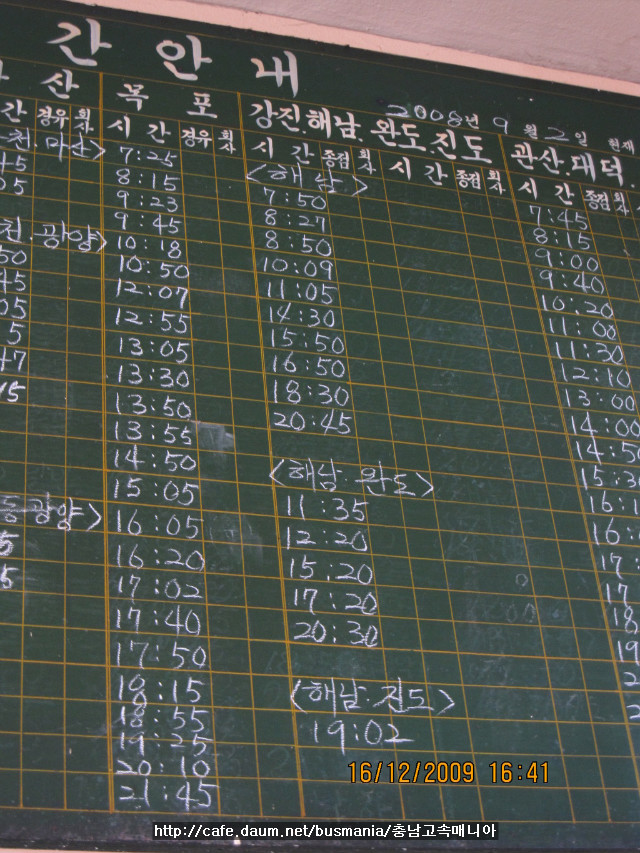 간 안 내
산 목 포 강진.해남.완도.진도 관산.대덕.
2008년 9월 2일 현재
간 경유 회사 시 간 경유 회사 시 간 종점 회사 시 간 종점 회사 시 간 종점 회사
천.마산> 7:25 <해 남> 7:45
45 8:15 7:50 8:15
05 9:23 8:27 9:00
9:45 8:50 9:40
천.광양> 10:18 10:09 10:20
50 10:50 11:05 11:00
45 12:07 14:30 11:30
05 12:55 15:50 12:10
5 13:05 16:50 13:00
47 13:30 18:30 14:00
15 13:50 20:45 14:50
13:55 15:30
14:50 <해남.완도> 16:1
15:05 11:35 16:
동광양> 16:05 12:20 17:
5 16:20 15:20 17
5 17:02 17:20 18
17:40 20:30 19
17:50 2
18:15 <해남.진도> 2
18:55 19:02
19:25
20:10
21:45
16/12/2009 16:41
http://cafe.daum.net/busmania/충남고속매니아